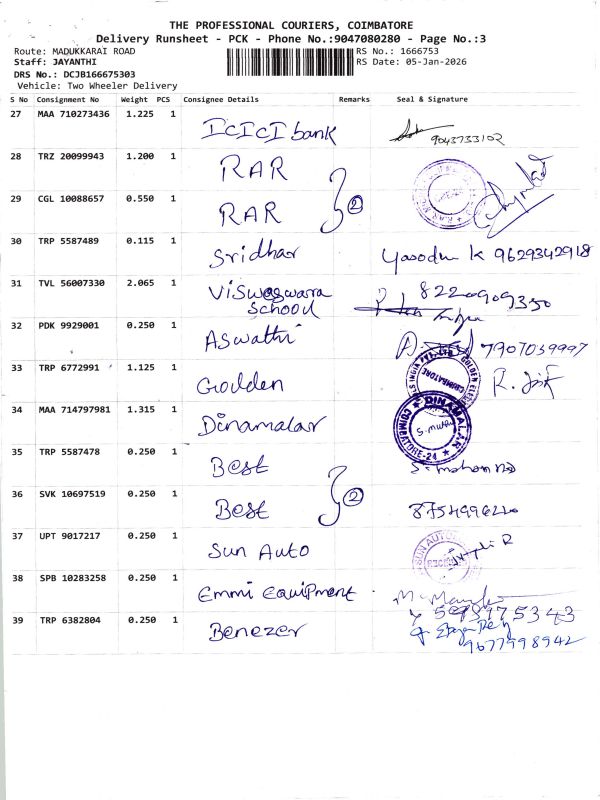 THE PROFESSIONAL COURIERS, COIMBATORE
Delivery Runsheet - PCK - Phone No.:9047080280 - Page No.:3
Route: MADUKKARAI ROAD RS No.: 1666753
Staff: JAYANTHI RS Date: 05-Jan-2026
DRS No.: DCJB166675303
Vehicle: Two Wheeler Delivery
S No Consignment No Weight PCS Consignee Details Remarks Seal & Signature
27 MAA 710273436 1.225 1 ICICI bank 9043733102
28 TRZ 20099943 1.200 1 RAR
29 CGL 10088657 0.550 1 RAR 2
30 TRP 5587489 0.115 1 Sridhar K 9629342918
31 TVL 56007330 2.065 1 Visweswara School 8220909350
32 PDK 9929001 0.250 1 Aswathi 7907039997
33 TRP 6772991 1.125 1 Golden COIMBATORE
34 MAA 714797981 1.315 1 Dinamalar DINAMALAR COIMBATORE-24
35 TRP 5587478 0.250 1 Best
36 SVK 10697519 0.250 1 Best 2
37 UPT 9017217 0.250 1 Sun Auto SUN AUTO
38 SPB 10283258 0.250 1 Emmi Equipment
39 TRP 6382804 0.250 1 Benezer 9677998942